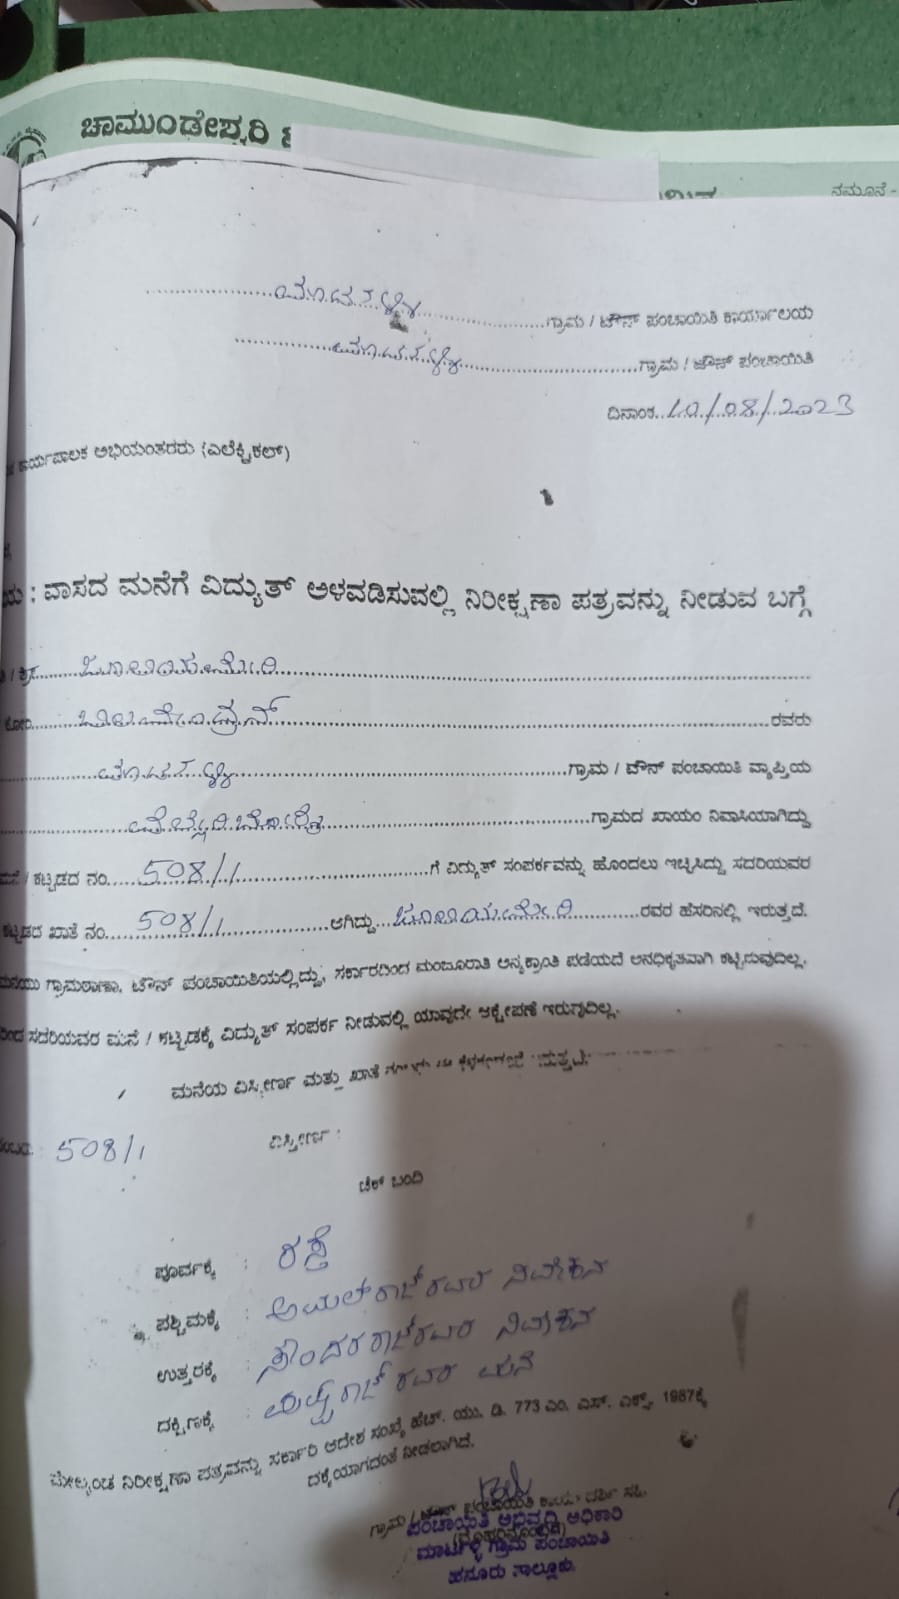 ಚಾಮುಂಡೇಶ್ವರಿ
ನಮೂನೆ -
ಗ್ರಾಮ / ಟೌನ್ ಪಂಚಾಯಿತಿ ಕಾರ್ಯಾಲಯ
ಗ್ರಾಮ / ಟೌನ್ ಪಂಚಾಯಿತಿ
ದಿನಾಂಕ..10/08/2023
ಕಾರ್ಯಪಾಲಕ ಅಭಿಯಂತರರು (ಎಲೆಕ್ಟ್ರಿಕಲ್)
: ವಾಸದ ಮನೆಗೆ ವಿದ್ಯುತ್ ಅಳವಡಿಸುವಲ್ಲಿ ನಿರೀಕ್ಷಣಾ ಪತ್ರವನ್ನು ನೀಡುವ ಬಗ್ಗೆ
ಜೂಲಿಯಮೇರಿ
ಕೋಂ ರವರು
ಗ್ರಾಮ / ಟೌನ್ ಪಂಚಾಯಿತಿ ವ್ಯಾಪ್ತಿಯ
ಗ್ರಾಮದ ಖಾಯಂ ನಿವಾಸಿಯಾಗಿದ್ದು
ಮನೆ / ಕಟ್ಟಡದ ನಂ.....508/1......ಗೆ ವಿದ್ಯುತ್ ಸಂಪರ್ಕವನ್ನು ಹೊಂದಲು ಇಚ್ಛಿಸಿದ್ದು ಸದರಿಯವರ
ಕಟ್ಟಡದ ಖಾತೆ ನಂ.....508/1......ಆಗಿದ್ದು...ಜೂಲಿಯಮೇರಿ......ರವರ ಹೆಸರಿನಲ್ಲಿ ಇರುತ್ತದೆ.
ಗ್ರಾಮಠಾಣಾ, ಟೌನ್ ಪಂಚಾಯಿತಿಯಲ್ಲಿದ್ದು, ಸರ್ಕಾರದಿಂದ ಮಂಜೂರಾತಿ ಅನ್ಯಕ್ರಾಂತಿ ಪಡೆಯದೆ ಅನಧಿಕೃತವಾಗಿ ಕಟ್ಟಿಸುವುದಿಲ್ಲ.
ಸದರಿಯವರ ಮನೆ / ಕಟ್ಟಡಕ್ಕೆ ವಿದ್ಯುತ್ ಸಂಪರ್ಕ ನೀಡುವಲ್ಲಿ ಯಾವುದೇ ಆಕ್ಷೇಪಣೆ ಇರುವುದಿಲ್ಲ.
ಮನೆಯ ವಿಸ್ತೀರ್ಣ ಮತ್ತು ಖಾತೆ
: 508/1 ವಿಸ್ತೀರ್ಣ :
ಚೆಕ್ ಬಂದಿ
ಪೂರ್ವಕ್ಕೆ : ರಸ್ತೆ
ಪಶ್ಚಿಮಕ್ಕೆ : ಅಮಲ್ ರಾಜ್ ರವರ ನಿವೇಶನ
ಉತ್ತರಕ್ಕೆ : ಸೌಂದರರಾಜ್ ರವರ ನಿವೇಶನ
ದಕ್ಷಿಣಕ್ಕೆ : ರಾಜ್ ರವರ ಮನೆ
ಮೇಲ್ಕಂಡ ನಿರೀಕ್ಷಣಾ ಪತ್ರವನ್ನು ಸರ್ಕಾರಿ ಆದೇಶ ಸಂಖ್ಯೆ ಹೆಚ್. ಯು. ಡಿ. 773 ಎಂ. ಎಸ್. ಎಕ್ಸ್. 1987ಕ್ಕೆ
ದಕ್ಕೆಯಾಗದಂತೆ ನೀಡಲಾಗಿದೆ.
ಗ್ರಾಮ / ಟೌನ್ ಪಂಚಾಯಿತಿ
ಪಂಚಾಯಿತಿ ಅಭಿವೃದ್ಧಿ ಅಧಿಕಾರಿ
ಮಾರ್ಟಳ್ಳಿ ಗ್ರಾಮ ಪಂಚಾಯಿತಿ
ಹನೂರು ತಾಲ್ಲೂಕು.